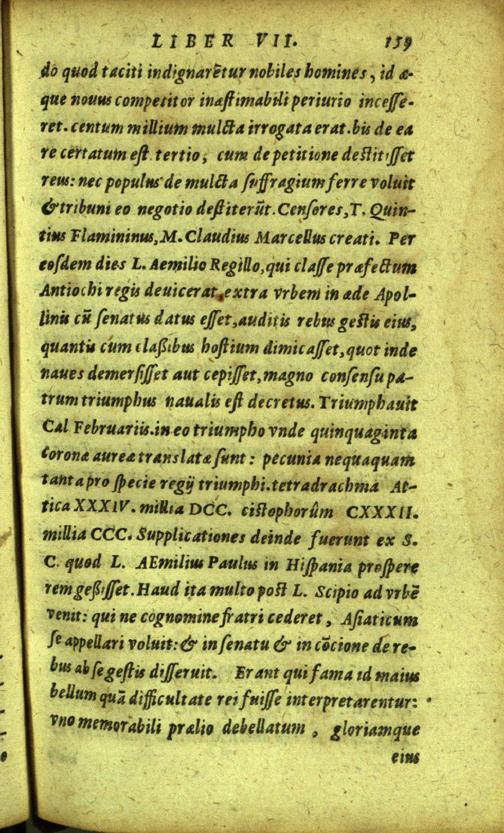 LIBER VII. 159
dò quod taciti indignarẽtur nobiles homines, id æ-
que nouus competitor inæstimabili periurio incesse-
ret. centum millium mulcta irrogata erat. bis de ea
re certatum est. tertio, cum de petitione destitisset
reus: nec populus de mulcta suffragium ferre voluit
& tribuni eo negotio destiterũt. Censores, T. Quin-
tius Flamininus, M. Claudius Marcellus creati. Per
eosdem dies L. Aemilio Regillo, qui classe præfectum
Antiochi regis deuicerat, extra vrbem in æde Apol-
linis cũ senatus datus esset, auditis rebus gestis eius,
quantis cum claßibus hostium dimicasset, quot inde
naues demersisset aut cepisset, magno consensu pa-
trum triumphus naualis est decretus. Triumphauit
Cal Februariis. in eo triumpho vnde quinquaginta
coronæ aureæ translatæ sunt: pecunia nequaquam
tanta pro specie regij triumphi. tetradrachma At-
tica XXXIV. millia DCC. cistophorûm CXXXII.
millia CCC. Supplicationes deinde fuerunt ex S.
C. quod L. AEmilius Paulus in Hispania prospere
rem geßisset. Haud ita multo post L. Scipio ad vrbẽ
venit: qui ne cognomine fratri cederet, Asiaticum
se appellari voluit: & in senatu & in cõcione de re-
bus ab se gestis disseruit. Erant qui fama id maius
bellum quã difficultate rei fuisse interpretarentur:
vno memorabili prælio debellatum, gloriamque
eius